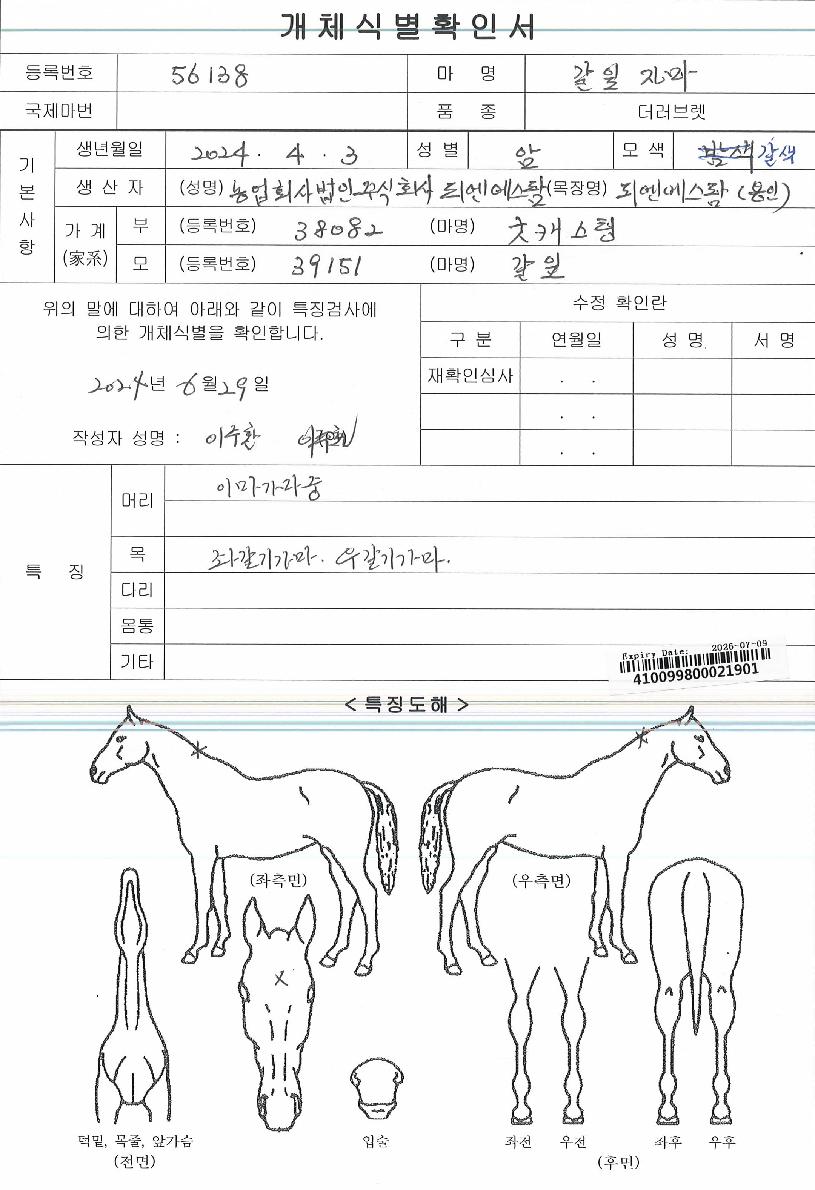 개체식별확인서
등록번호 56138 마 명 갈월지마
국제마번 품 종 더러브렛
기본사항
생년월일 2024. 4. 3 성별 암 모색 갈색
생산자 (성명) 농업회사법인 주식회사 디엔에스팜 (목장명) 디엔에스팜 (용인)
가계 (家系) 부 (등록번호) 38082 (마명) 굿캐스팅
모 (등록번호) 39151 (마명) 갈월
위의 말에 대하여 아래와 같이 특징검사에
의한 개체식별을 확인합니다.
2024년 6월 29일
작성자 성명 : 이주환
수정 확인란
구 분 연월일 성 명 서 명
재확인심사 . .
. .
. .
특 징
머리 이마가마중
목 좌갈기가마. 우갈기가마.
다리
몸통
기타
Expiry Date: 2026-07-09
410099800021901
< 특징도해 >
(좌측면) (우측면)
덕밑, 목줄, 앞가슴
(전면)
입술
좌전 우전 좌후 우후
(후면)